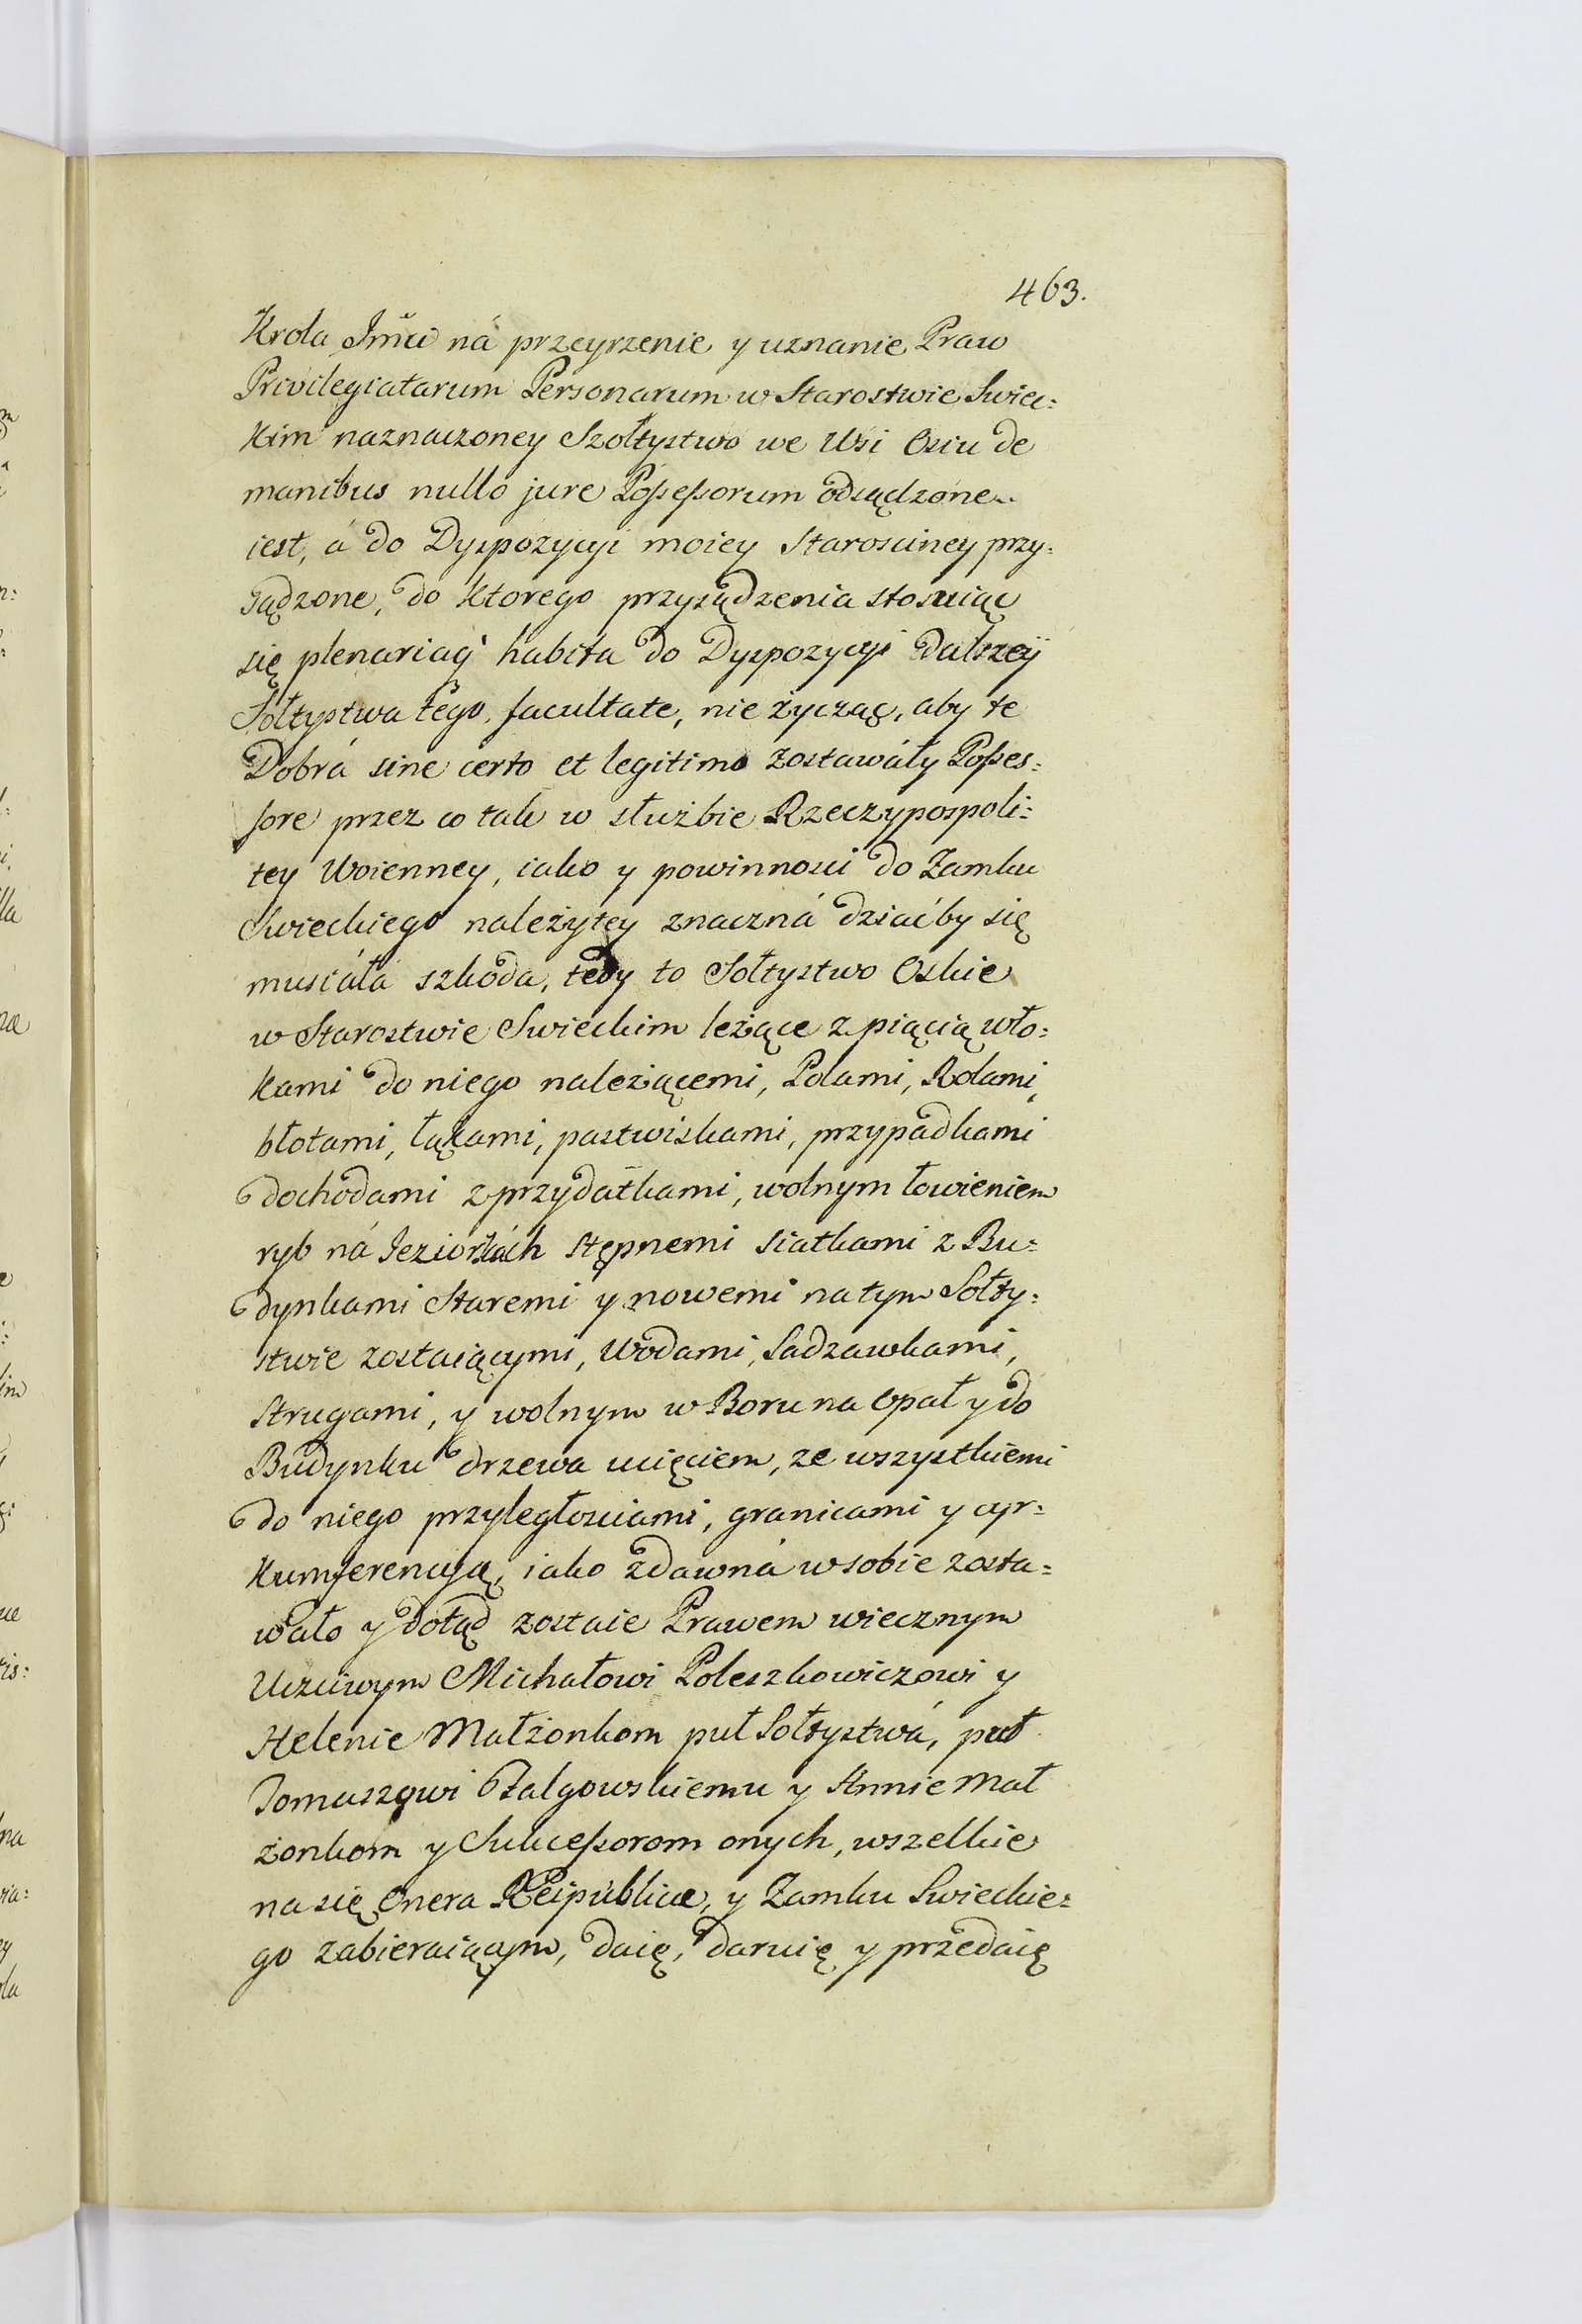 463.
Krola Jmći ná przeyrzenie y uznanie Praw
Privilegiatarum Personarum w Starostwie Swiec:
kim naznaczoney Szołtystwo we Wsi Osiu de
manibus nullo jure Poßeßorum odsądzone
iest, á do Dyspozycyi moiey Starosciney przy:
sądzone, do ktorego przysądzenia stosuiąc
się plenariaq habita do Dyspozycyi dalszey
Sołtystwa tego facultate, nie życząc, aby te
Dobrá sine certo et legitimo zostawáły Poßes:
sore przez co tak w służbie Rzeczypospoli:
tey Woienney, iako y powinnosci do Zamku
Swieckiego należytey znaczná dziaćby się
musiáłá szkoda, tedy to Sołtystwo Oskie
w Starostwie Swieckim leżące z piącią wło:
kami do niego należącemi, Polami, Rolami,
błotami, łąkami, pastwiskami, przypadkami
dochodami z przydatkami, wolnym łowieniem
ryb ná Jeziorkách stępnemi siatkami z Bu:
dynkami Staremi y nowemi na tym Sołty:
stwie zostaiącymi, Wodami, Sadzawkami,
Strugami, y wolnym w Boru na Opał y do
Budynku drzewa ucięciem, ze wszystkiemi
do niego przyległosciami, granicami y cyr:
kumferencyą, iako zdawná w sobie zosta:
wało y dotąd zostaie Prawem wiecznym
Uczciwym Michałowi Poleszkowiczowi y
Helenie Małżonkom puł Sołtystwá, puł
Tomaszowi Załgowskiemu y Annie Mał
żonkom y Sukceßorom onych, wszelkie
na się Onera Reipublicae, y Zamku Swieckie:
go zabieraiącym, daię, daruię y przedaię